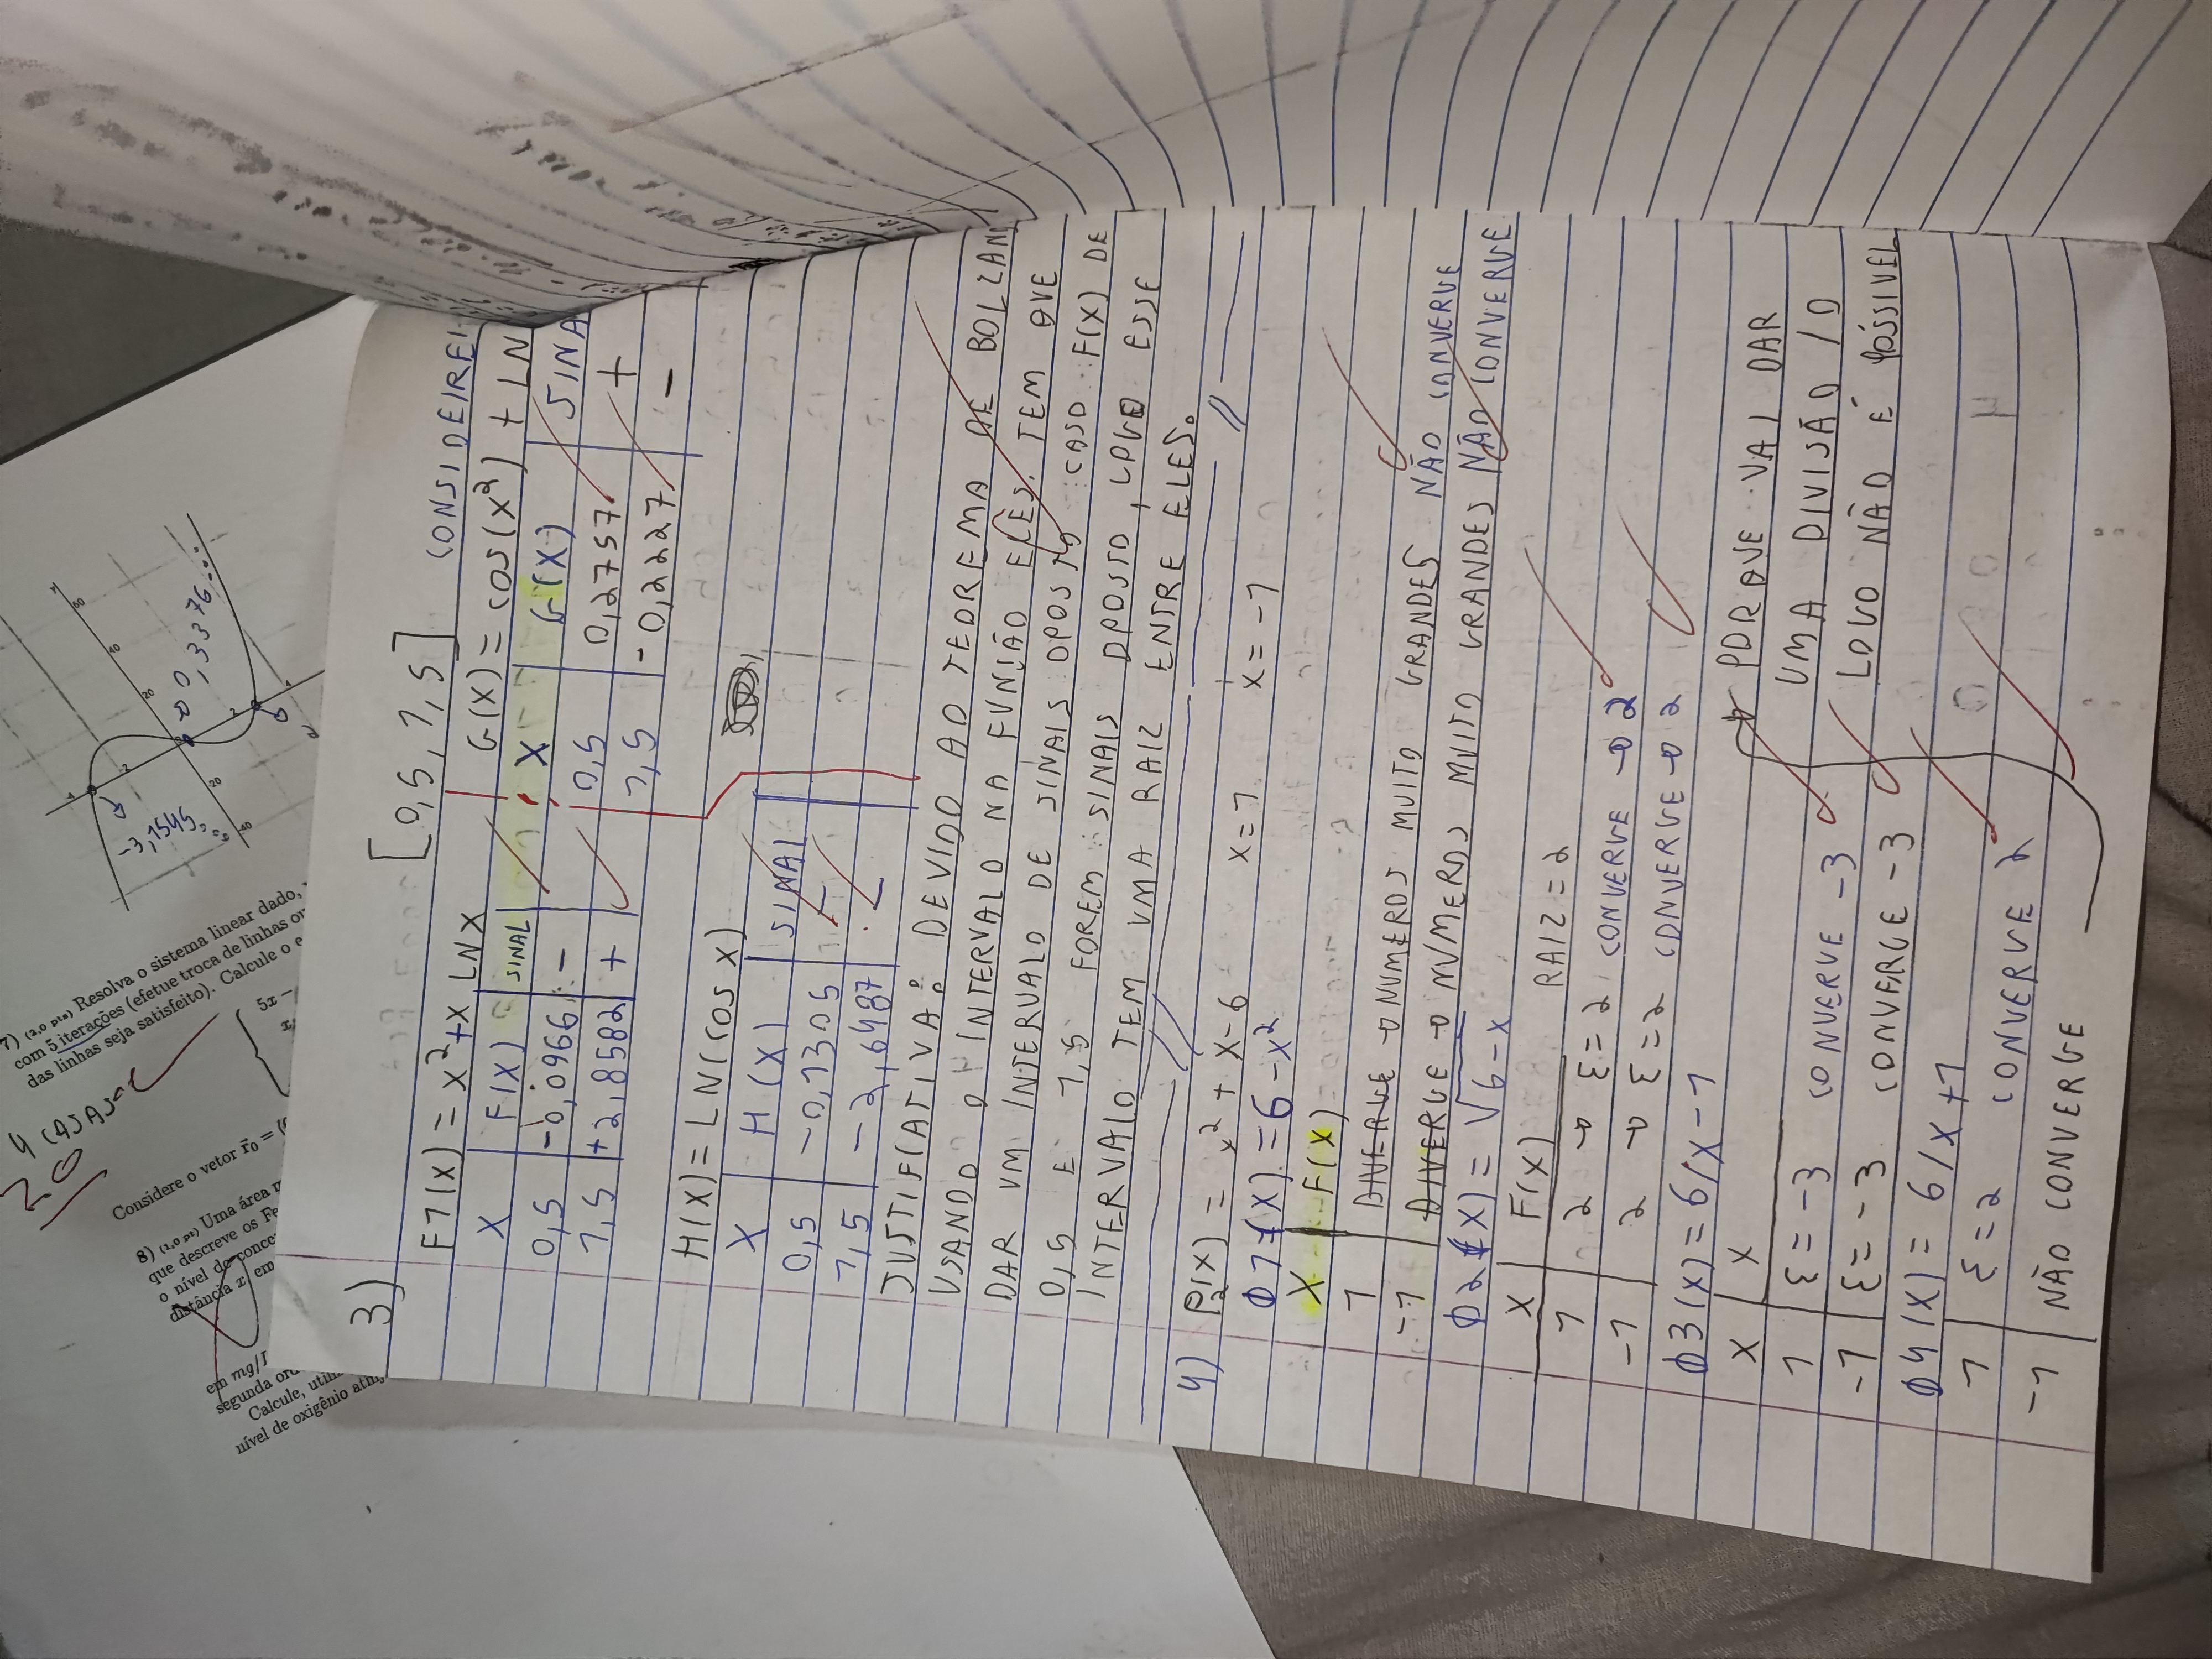 4 (A) A)
2.0
7) (2,0 pts) Resolva o sistema linear dado,
com 5 iterações (efetue troca de linhas
das linhas seja satisfeito). Calcule o
5x -
Considere o vetor r⃗0 = (
8) (2,0 pts) Uma área
que descreve os
o nível de conce
distância x em
em mg/l
segunda
Calcule,
nível de oxigênio
-3,1545...
0,3376...
60
40
20
2
20
40
2
4
3)
[0,5, 1,5] CONSIDEIREI
F1(X) = X²+X LNX
G(X) = COS(X²) + LN
X F(X) SINAL
0,5 -0,0966 -
1,5 +2,8582 +
X G(X) SINA
0,5 0,2757 +
1,5 -0,2227 -
H(X) = LN(COS X)
X H(X) SINAL
0,5 -0,1305 -
1,5 -2,6487 -
JUSTIFICATIVA: DEVIDO AO TEOREMA DE BOLZANO
USANDO O INTERVALO NA FUNÇÃO ELES. TEM QUE
DAR UM INTERVALO DE SINAIS OPOSTO CASO F(X) DE
0,5 E 1,5 FOREM SINAIS OPOSTO, LOGO ESSE
INTERVALO TEM UMA RAIZ ENTRE ELES.
4) P2(X) = x² + X-6 X=1 X=-1
Ø1(X) = 6-X²
X F(X)
1 DIVERGE → NUMEROS MUITO GRANDES NÃO CONVERGE
-1 DIVERGE → NUMEROS MUITO GRANDES NÃO CONVERGE
Ø2(X) = √6-X
X F(X) RAIZ = 2
1 2 → Ɛ=2 CONVERGE → 2
-1 2 → Ɛ=2 CONVERGE → 2
Ø3(X) = 6/X-1
X X
1 Ɛ=-3 CONVERGE -3
-1 Ɛ=-3 CONVERGE -3
Ø4(X) = 6/X+1
1 Ɛ=2 CONVERGE 2
-1 NÃO CONVERGE
→ PORQUE VAI DAR
UMA DIVISÃO /0
LOGO NÃO É POSSIVEL